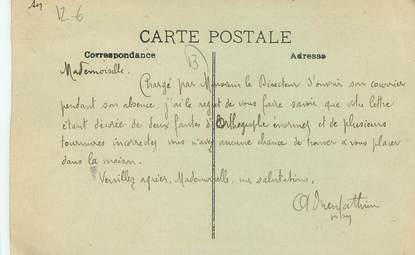 12-6
CARTE POSTALE
Correspondance
B
Adresse
Mademoiselle.
Chargé par Monsieur le Directeur d'ouvrir son courrier
pendant son absence, j'ai le regret de vous faire savoir que votre lettre
étant décorée de deux fautes d'Orthographe énormes et de plusieurs
tournures incorrectes vous n'avez aucune chance de trouver à vous placer
dans la maison.
Veuillez agréer, Mademoiselle, mes salutations.